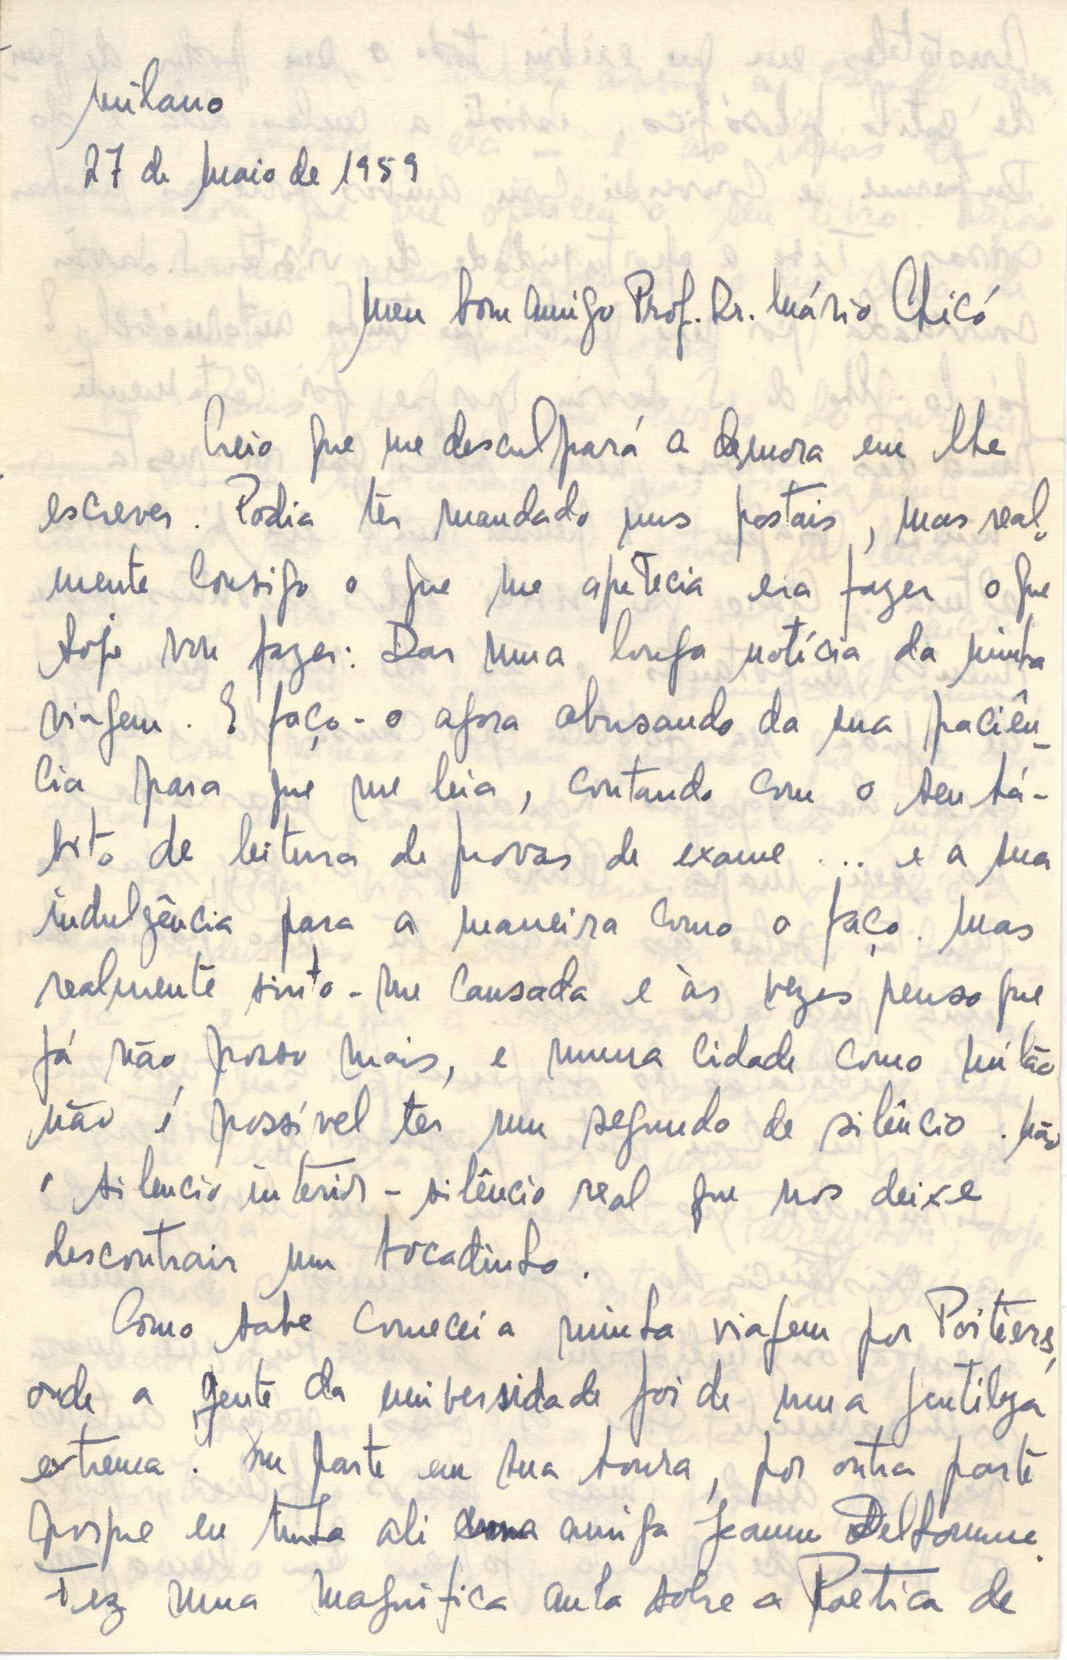 Milano
27 de Maio de 1959
Meu bom amigo Prof. Dr. Mário Chicó
Creio que me desculpará a demora em lhe
escrever. Podia ter mandado uns postais, mas real-
mente consigo o que me apetecia era fazer o que
hoje vou fazer: Dar uma longa notícia da minha
viagem. E faço-o agora abusando da sua paciên-
cia para que me leia, contando com o seu há-
bito de leitura de provas de exame ... e a sua
indulgência para a maneira como o faço. Mas
realmente sinto-me cansada e às vezes penso que
já não posso mais, e numa cidade como Milão
não é possível ter um segundo de silêncio. Não
o silencio interior - silêncio real que nos deixe
descontrair um bocadinho.
Como sabe comecei a minha viagem por Poitiers,
onde a gente da universidade foi de uma gentileza
extrema. Em parte em sua honra, por outra parte
porque eu tinha ali uma amiga Jeanne Delhomme.
Fez uma magnífica aula sobre a Poetica de